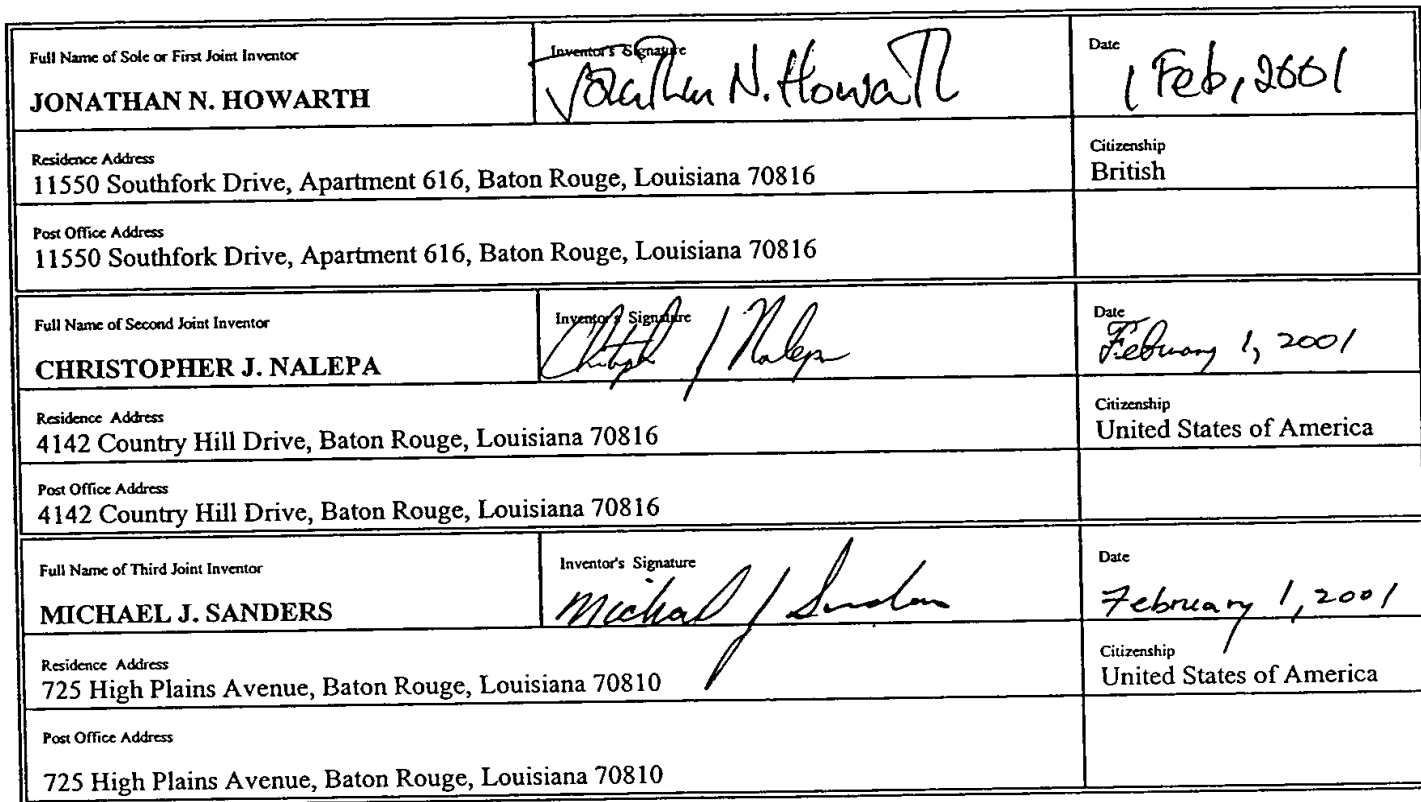 Full Name of Sole or First Joint Inventor
JONATHAN N. HOWARTH
Inventor's Signature
Jonathan N. Howarth
Date
1 Feb, 2001
Residence Address
11550 Southfork Drive, Apartment 616, Baton Rouge, Louisiana 70816
Citizenship
British
Post Office Address
11550 Southfork Drive, Apartment 616, Baton Rouge, Louisiana 70816
Full Name of Second Joint Inventor
CHRISTOPHER J. NALEPA
Inventor's Signature
Christoph J Nalepa
Date
February 1, 2001
Residence Address
4142 Country Hill Drive, Baton Rouge, Louisiana 70816
Citizenship
United States of America
Post Office Address
4142 Country Hill Drive, Baton Rouge, Louisiana 70816
Full Name of Third Joint Inventor
MICHAEL J. SANDERS
Inventor's Signature
Michael J Sanders
Date
February 1, 2001
Residence Address
725 High Plains Avenue, Baton Rouge, Louisiana 70810
Citizenship
United States of America
Post Office Address
725 High Plains Avenue, Baton Rouge, Louisiana 70810